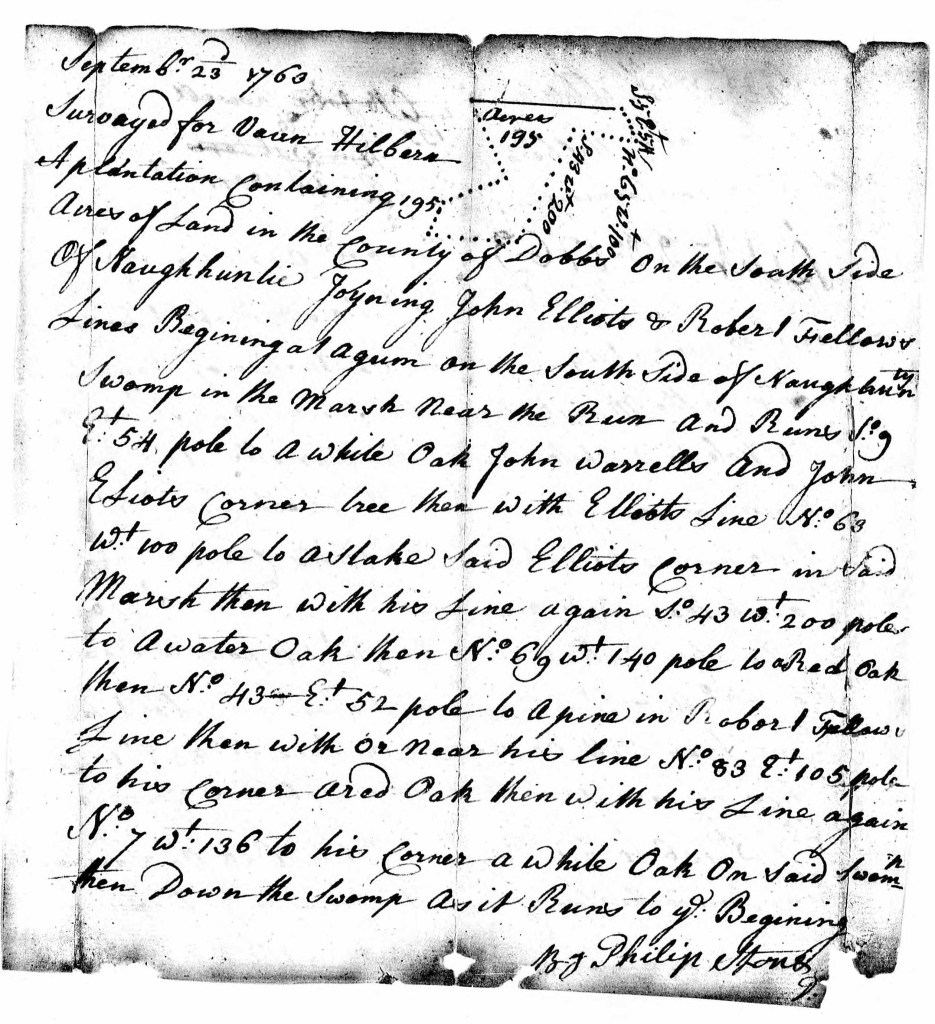 Septembr 23d 1760
Survayed for Vaun Hilbern
A plantation Containing 195
Acres of Land in the County of Dobbs On the South Side
Of Naughhuntie Joyning John Elliots & Robert Fellows
Lines Begining at a gum on the South Side of Naughhunty
Swomp in the Marsh Near the Run and Runs So. 9
Et. 54 pole to A while Oak John Warrells And John
Eliots Corner tree then with Elliots Line No. 63
Wt. 100 pole to a stake Said Elliots Corner in Said
Marsh then with his Line again So. 43 Wt. 200 pole
to A water Oak then No. 69 Wt. 140 pole to a Red Oak
then No. 43 Et. 52 pole to A pine in Robort Fellows
Line then with Or near his line No. 83 Et. 105 pole
to his Corner a red Oak then with his Line again
No. 7 Wt. 136 to his Corner a while Oak On Said Swomp
then Down the Swomp As it Runs to ye. Begining
By Philip
Acres
195
So. 43 Wt. 200
No. 63 W. 100